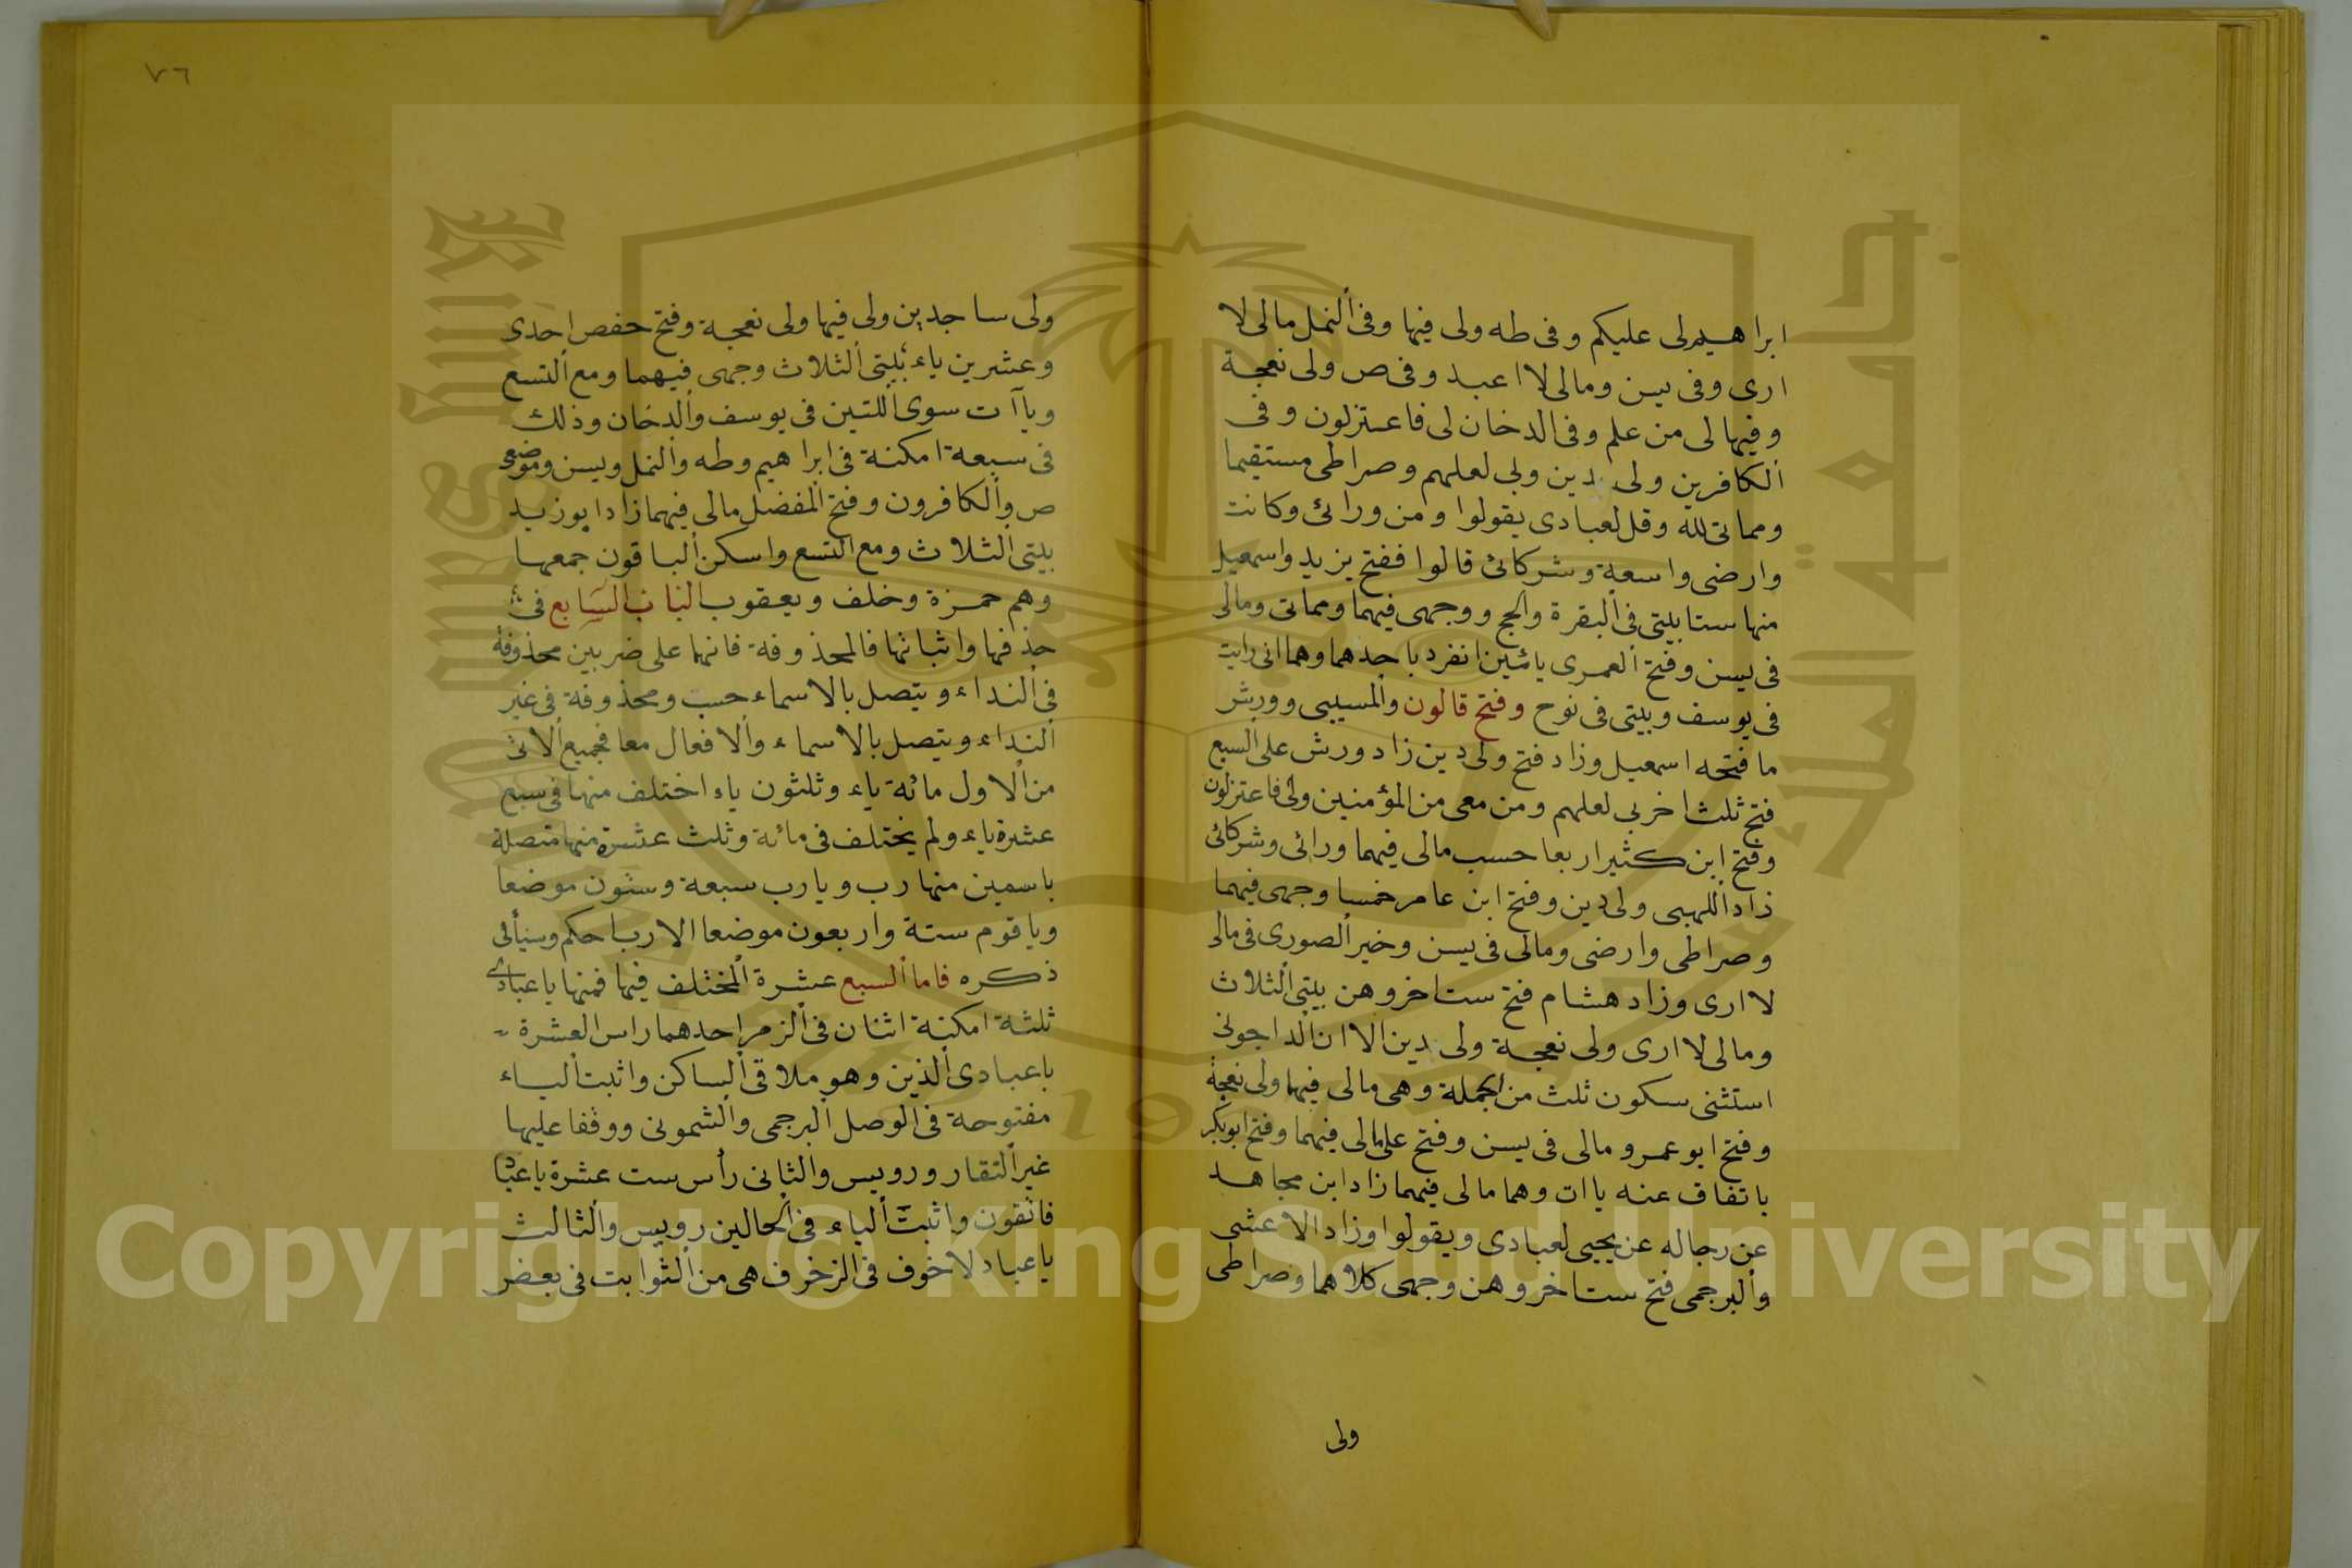 ابراهيم لى عليكم وفى طه ولى فيها وفى ألنمل مالى لا
ارى وفى يسن ومالى لا اعبد وفى ص ولى نعجة
وفيها لى من علم وفى الدخان لى فاعتزلون وفى
ألكافرين ولى دين وبى لعلهم وصراطى مستقيما
ومماتى لله وقل لعبادى يقولوا ومن ورائى وكانت
وارضى واسعة وشركائى قالوا ففتح يزيد واسمعيل
منها ستا بيتى فى ألبقرة والحج ووجهى فيهما ومماتى ومالى
فى يسن وفتح ألعمرى يائين انفرد باحدهما وهما انى رايت
فى يوسف وبيتى فى نوح وفتح قالون وألمسيبى وورش
ما فتحه اسمعيل وزاد فتح ولى دين زاد ورش على السبع
فتح ثلث اخر بى لعلهم ومن معى من المؤمنين ولى فاعتزلون
وفتح ابن كثير اربعا حسب مالى فيهما ورائى وشركائى
زاد أللهبى ولى دين وفتح ابن عامر خمسا وجهى فيهما
وصراطى وارضى ومالى فى يسن وخير ألصورى فى مالى
لا ارى وزاد هشام فتح ست اخر وهن بيتى ألثلاث
ومالى لا ارى ولى نعجة ولى دين الا ان ألداجونى
استثنى سكون ثلث من الجملة وهى مالى فيهما ولى نعجة
وفتح ابو عمرو مالى فى يسن وفتح على مالى فيهما وفتح ابو بكر
باتفاق عنه ياات وهما مالى فيهما زاد ابن مجاهد
عن رجاله عن يحيى لعبادى ويقولوا وزاد الاعشى
وألبرجمى فتح ست اخر وهن وجهى كلاهما وصراطى
ولى
٧٦
ولى ساجدين ولى فيها ولى نعجة وفتح حفص احدى
وعشرين ياء بيتى ألثلاث وجهى فيهما ومع ألتسع
وياآت سوى أللتين فى يوسف وألدخان وذلك
فى سبعة امكنة فى ابراهيم وطه وألنمل ويسن وموضعى
ص وألكافرون وفتح ألمفضل مالى فيهما زاد ابو زيد
بيتى الثلاث ومع التسع واسكن ألباقون جمعها
وهم حمزة وخلف ويعقوب الباب السابع فى
حذفها واثباتها فالمحذوفة فانها على ضربين محذوفة
فى ألنداء ويتصل بالاسماء حسب ومحذوفة فى غير
ألنداء ويتصل بالاسماء وألافعال معا فجميع ألاتى
من ألاول مائة ياء وثلثون ياء اختلف منها فى سبع
عشرة ياء ولم يختلف فى مائة وثلث عشرة منها متصلة
باسمين منها رب ويارب سبعة وستون موضعا
وياقوم ستة واربعون موضعا الا رب احكم وسيأتى
ذكره فاما ألسبع عشرة ألمختلف فيها فمنها ياعبادى
ثلثة امكنة اثنان فى ألزمر احدهما راس العشرة
ياعبادى ألذين وهو ملاقى ألساكن واثبت ألياء
مفتوحة فى ألوصل ألبرجمى وألشمونى ووقفا عليها
غير ألتقار ورويس والثانى رأس ست عشرة ياعباد
فاتقون واثبت ألياء فى ألحالين رويس وألثالث
ياعباد لاخوف فى الزخرف هى من ألثوابت فى بعض
Copyright © King Saud University